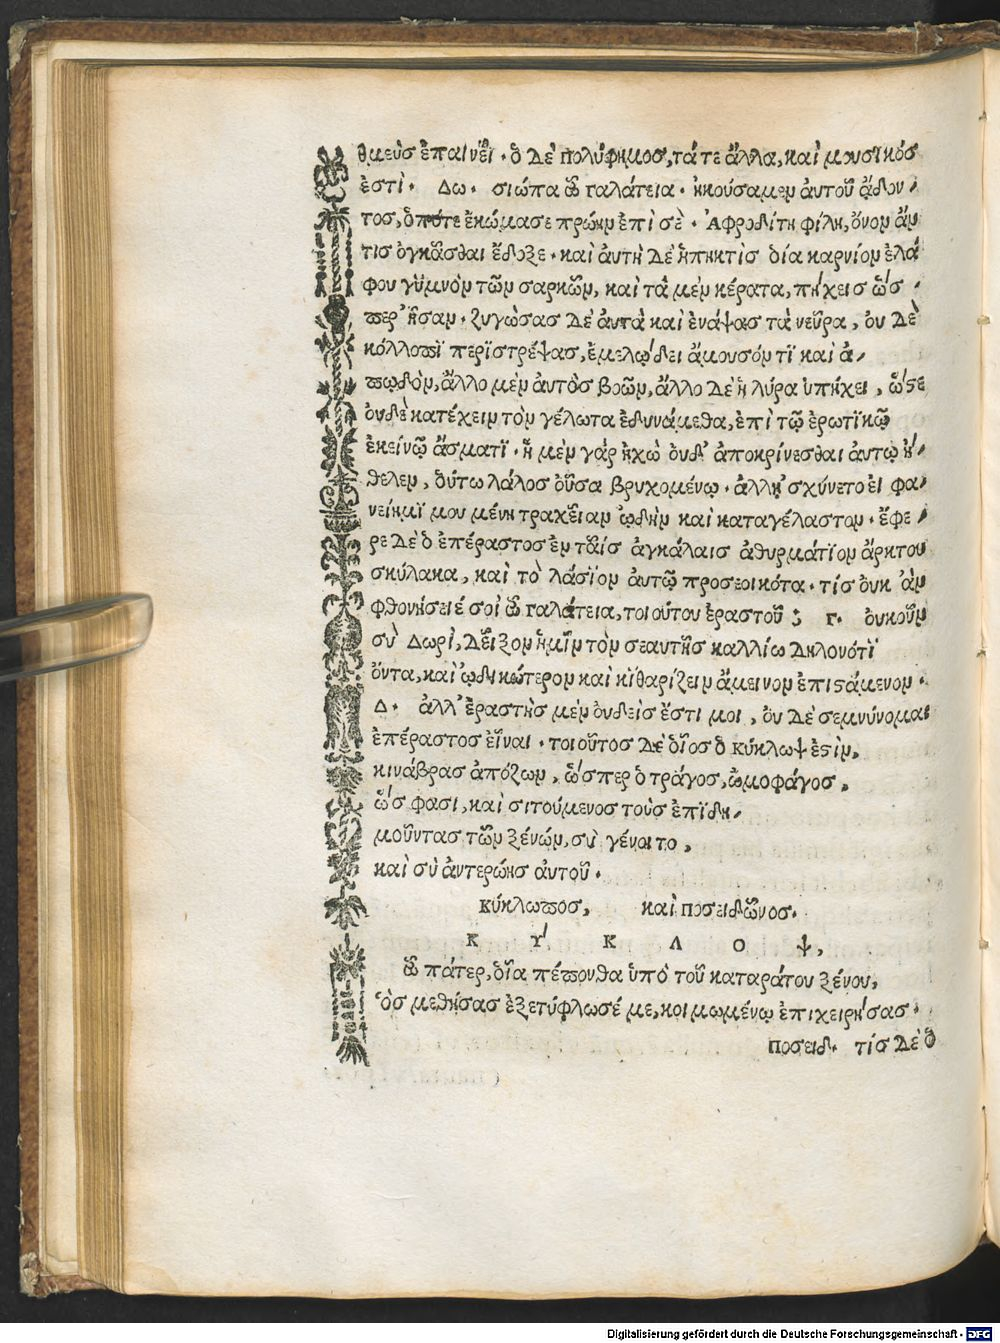 θμεὺς ἐπαινέῖ. ὁ Δὲ πολύφημος, τά τε ἄλλα, καὶ μουσικός
ἐστὶ. Δω. σιώπα ὦ γαλάτεια. ἠκούσαμεν αὐτοῦ ᾄδον/
τος, ὁπότε ἐκώμασε πρώην ἐπὶ σὲ. Ἀφροδίτη φίλη, ὄνον ἄν
τις ὀγκᾶσθαι ἔδοξε. καὶ αὐτὴ Δὲ ἡ πηκτὶς ὁία κρανίον ἐλά
φου γὔμνὸν τῶν σαρκῶν, καὶ τὰ μὲν κέρατα, πήχεις ὥς
περ ἦσαν. ζυγώσας Δὲ αὐτὰ καὶ ἐνάψας τὰ νεῦρα, οὐ Δὲ
κόλλοπϊ περϊστρέψας, ἐμελῴδει ἄμουσόν τϊ καὶ ἀ/
πῳδὸν, ἄλλο μὲν αὐτὸς βοῶν, ἄλλο Δὲ ἡ λύρα ὑπήχει, ὥστε
οὐδὲ κατέχειν τὸν γέλωτα ἐδυνάμεθα, ἐπὶ τῷ ἐρωτϊκῷ
ἐκείνῳ ᾄσματϊ. ἡ μὲν γὰρ ἠχὼ οὐδ' ἀποκρίνεσθαι αὐτῳ ἤ/
θελεν, ὁύτω λάλος οὖσα βρυχομένῳ. ἀλλ' ᾐσχύνετο εἰ φα/
νείη μϊμουμένη τραχεῖαν ᾠδὴν καὶ καταγέλαστον. ἔφε/
ρε Δὲ ὁ ἐπέραστος ἐν ταῖς ἀγκάλαις ἀθυρμάτϊον ἄρκτου
σκύλακα, καὶ τὸ λάσϊον αὐτῷ προσεοικότα. τίς οὐκ ἂν
φθονήσειέ σοὶ ὦ γαλάτεια, τοιούτου ἐραστοῦ; Γ. οὐκοῦν
σὺ Δωρὶ, Δεῖξον ἡμῖν τὸν σεαυτῆς καλλίω Δηλονότϊ
ὄντα, καὶ ᾠδϊκώτερον καὶ κϊθαρίζειν ἄμεινον ἐπιστάμενον.
Δ. ἀλλ' ἐραστὴς μὲν ὀυδεὶς ἔστι μοι, ὀυ Δὲ σεμνύνομαι
ἐπέραστος εἶναι. τοιοῦτος Δὲ ὁῖος ὁ κύκλωψ ἐστὶν,
κινάβρας ἀπόζων, ὥσπερ ὁ τράγος, ὠμοφάγος,
ὥς φασι, καὶ σιτούμενος τοὺς ἐπϊδη/
μοῦντας τῶν ξένων, σὺ γένοιτο,
καὶ σὺ ἀντερώης ἀυτοῦ.
κύκλωπος, καὶ ποσειδῶνος.
Κ Ύ Κ Λ Ο ψ,
ὦ πάτερ, ὁῖα πέπονθα ὑπὸ τοῦ καταράτου ξένου,
ὃς μεθήσας ἐξετύφλωσέ με, κοιμωμένῳ ἐπιχειρήσας.
ποσειδ. τίς Δὲ ὁ
Digitalisierung gefördert durch die Deutsche Forschungsgemeinschaft - DFG